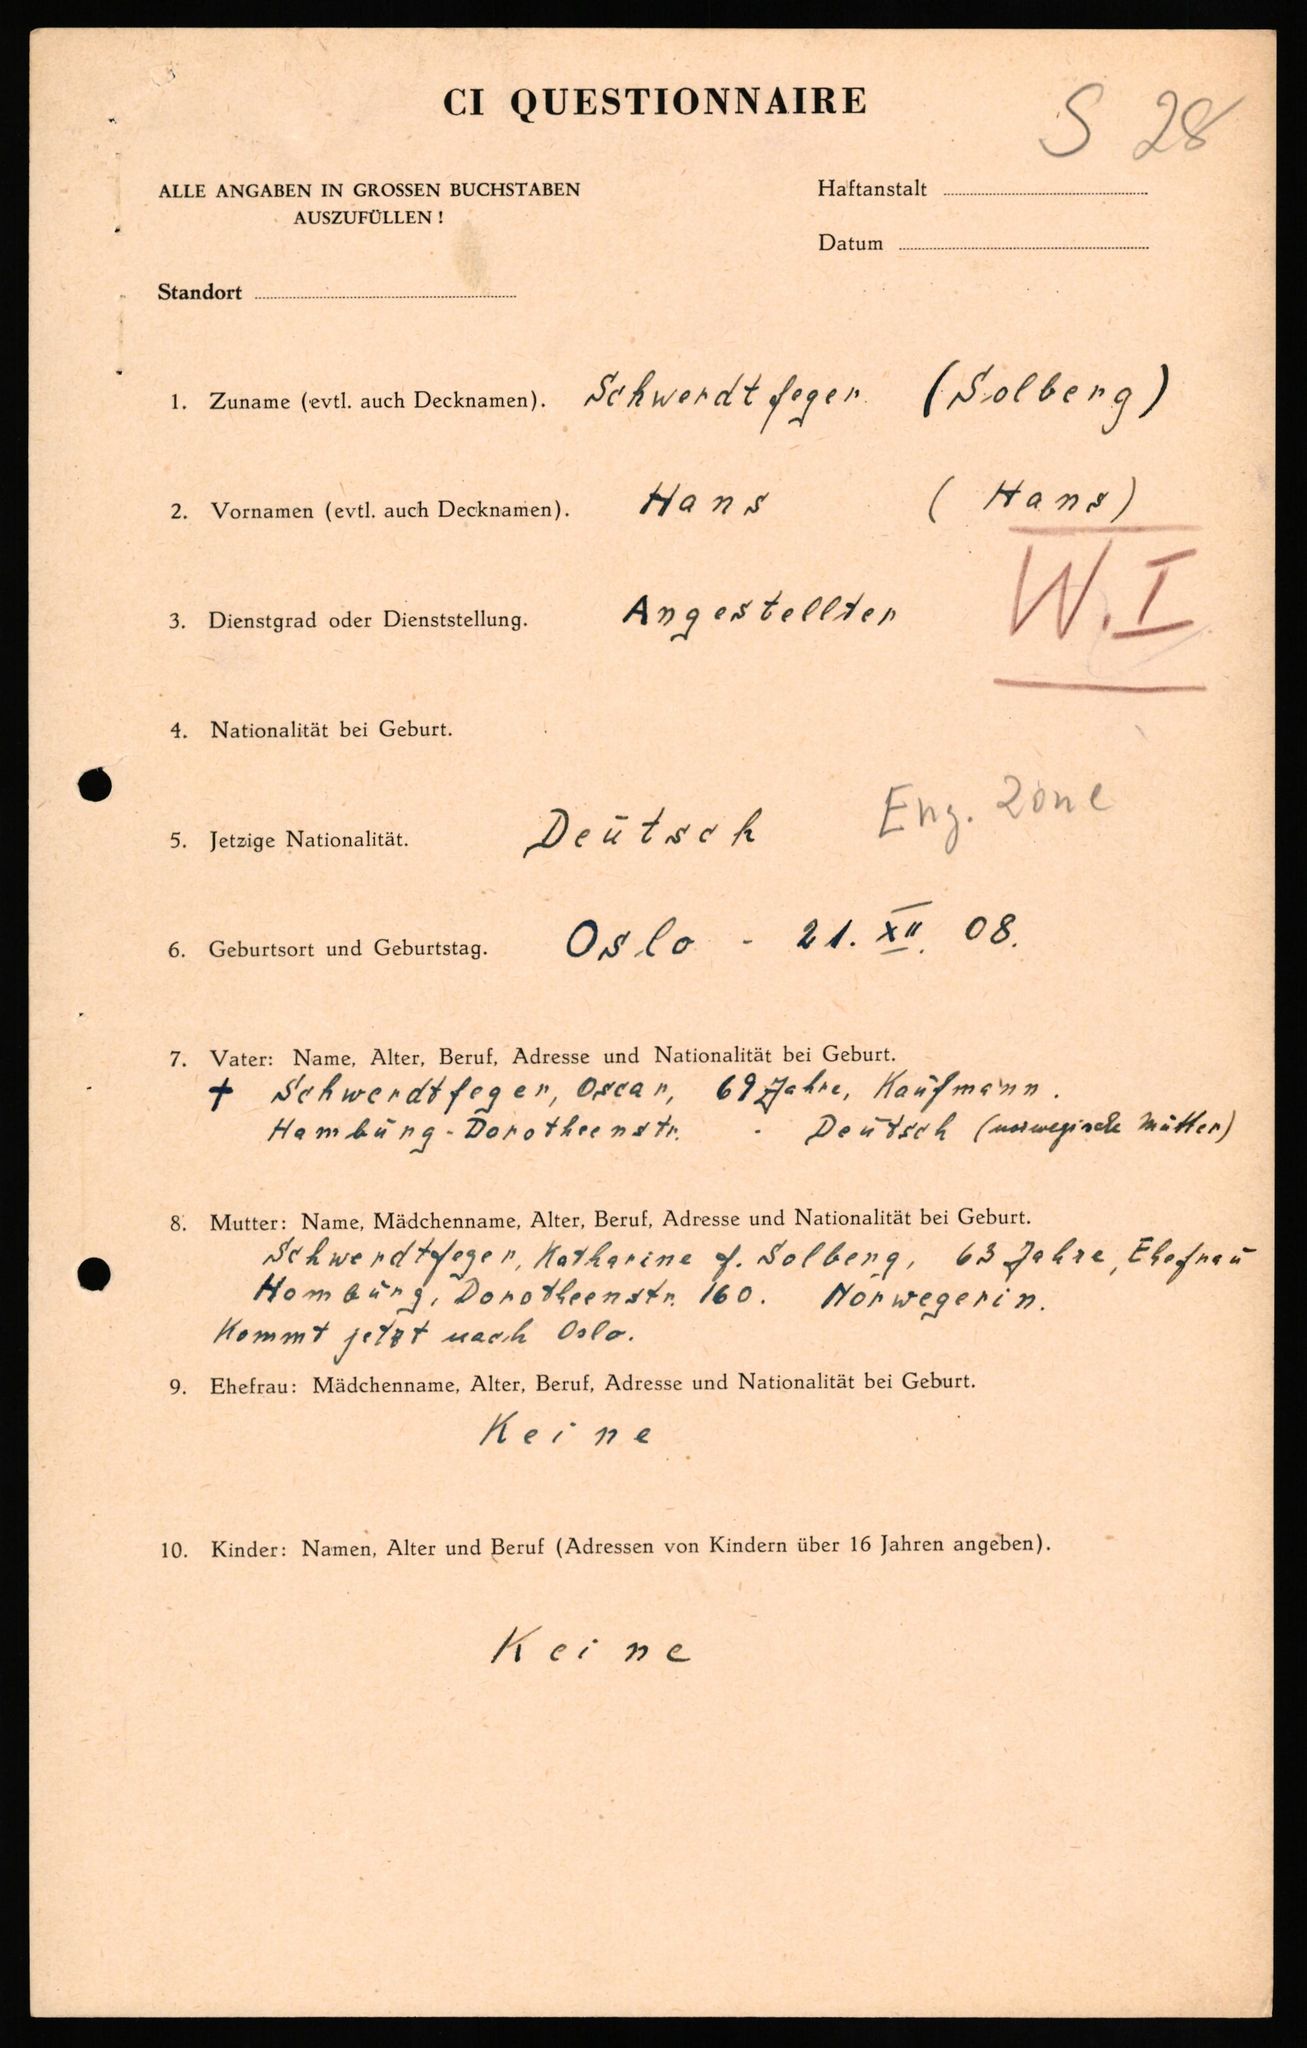 CI QUESTIONNAIRE
S 28
ALLE ANGABEN IN GROSSEN BUCHSTABEN
AUSZUFÜLLEN!
Haftanstalt
Datum
Standort
1. Zuname (evtl. auch Decknamen). Schwerdtfeger (Solberg)
2. Vornamen (evtl. auch Decknamen). Hans (Hans)
W.I
3. Dienstgrad oder Dienststellung. Angestellter
4. Nationalität bei Geburt.
Eng. Zone
5. Jetzige Nationalität. Deutsch
6. Geburtsort und Geburtstag. Oslo - 21. XII. 08.
7. Vater: Name, Alter, Beruf, Adresse und Nationalität bei Geburt.
+ Schwerdtfeger, Oscar, 69 Jahre, Kaufmann.
Hamburg - Dorotheenstr. - Deutsch (norwegische Mutter)
8. Mutter: Name, Mädchenname, Alter, Beruf, Adresse und Nationalität bei Geburt.
Schwerdtfeger, Katharine f. Solberg, 63 Jahre, Ehefrau
Hamburg, Dorotheenstr. 160. Norwegerin.
Kommt jetzt nach Oslo.
9. Ehefrau: Mädchenname, Alter, Beruf, Adresse und Nationalität bei Geburt.
Keine
10. Kinder: Namen, Alter und Beruf (Adressen von Kindern über 16 Jahren angeben).
Keine